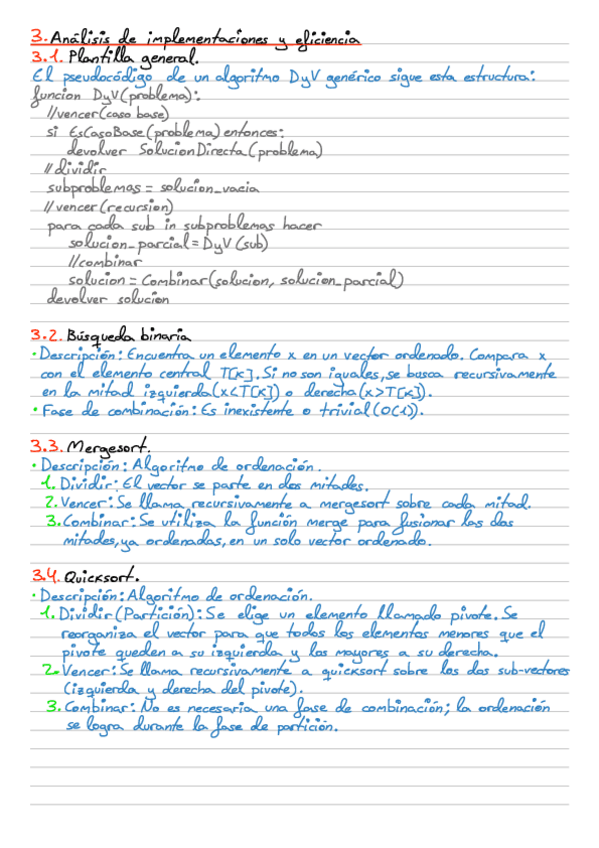 3. Análisis de implementaciones y eficiencia
3.1. Plantilla general.
El pseudocódigo de un algoritmo DyV genérico sigue esta estructura:
funcion DyV(problema):
//vencer(caso base)
si EsCasoBase(problema) entonces:
devolver SolucionDirecta(problema)
//dividir
subproblemas = solucion_vacia
//vencer(recursion)
para cada sub in subproblemas hacer
solucion_parcial = DyV(sub)
//combinar
solucion = Combinar(solucion, solucion_parcial)
devolver solucion
3.2. Búsqueda binaria
· Descripción: Encuentra un elemento x en un vector ordenado. Compara x
con el elemento central T[K]. Si no son iguales, se busca recursivamente
en la mitad izquierda(x<T[K]) o derecha(x>T[K]).
· Fase de combinación: Es inexistente o trivial(O(1)).
3.3. Mergesort.
· Descripción: Algoritmo de ordenación.
1. Dividir: El vector se parte en dos mitades.
2. Vencer: Se llama recursivamente a mergesort sobre cada mitad.
3. Combinar: Se utiliza la función merge para fusionar las dos
mitades, ya ordenadas, en un solo vector ordenado.
3.4. Quicksort.
· Descripción: Algoritmo de ordenación.
1. Dividir(Partición): Se elige un elemento llamado pivote. Se
reorganiza el vector para que todos los elementos menores que el
pivote queden a su izquierda y los mayores a su derecha.
2. Vencer: Se llama recursivamente a quicksort sobre los dos sub-vectores
(izquierda y derecha del pivote).
3. Combinar: No es necesaria una fase de combinación; la ordenación
se logra durante la fase de partición.